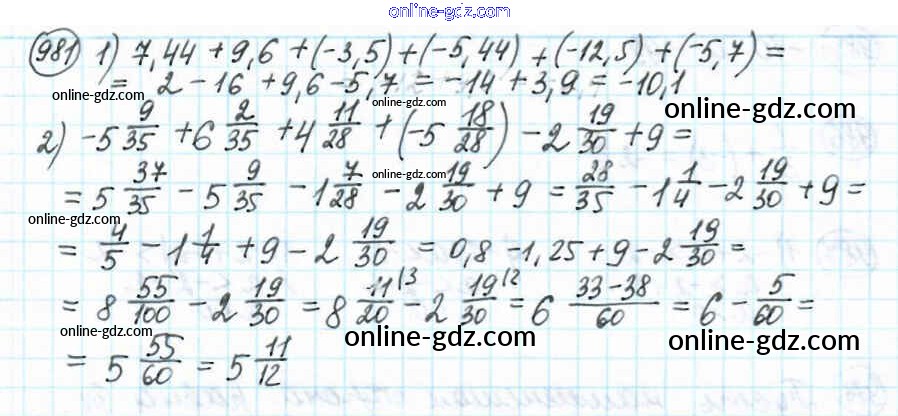 online-gdz.com
981 1) 7,44 + 9,6 + (-3,5) + (-5,44) + (-12,5) + (-5,7) =
= 2 - 16 + 9,6 - 5,7 = -14 + 3,9 = -10,1
online-gdz.com online-gdz.com
online-gdz.com
2) -5 9/35 + 6 2/35 + 4 11/28 + (-5 18/28) - 2 19/30 + 9 =
online-gdz.com
= 5 37/35 - 5 9/35 - 1 7/28 - 2 19/30 + 9 = 28/35 - 1 1/4 - 2 19/30 + 9 =
online-gdz.com
= 4/5 - 1 1/4 + 9 - 2 19/30 = 0,8 - 1,25 + 9 - 2 19/30 =
= 8 55/100 - 2 19/30 = 8 11/20 |3 - 2 19/30 |2 = 6 33-38/60 = 6 - 5/60 =
online-gdz.com online-gdz.com online-gdz.com
= 5 55/60 = 5 11/12